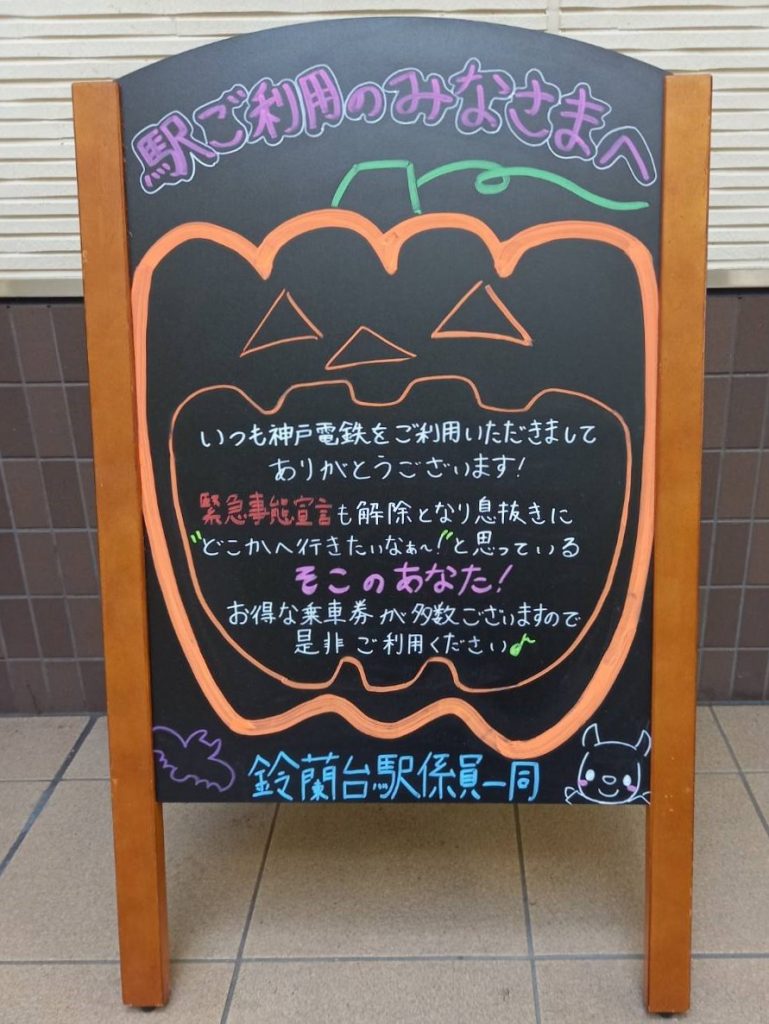 駅ご利用のみなさまへ
いつも神戸電鉄をご利用いただきまして
ありがとうございます!
緊急事態宣言も解除となり息抜きに
"どこかへ行きたいなぁ~!"と思っている
そこのあなた!
お得な乗車券が多数ございますので
是非ご利用ください♪
鈴蘭台駅係員一同